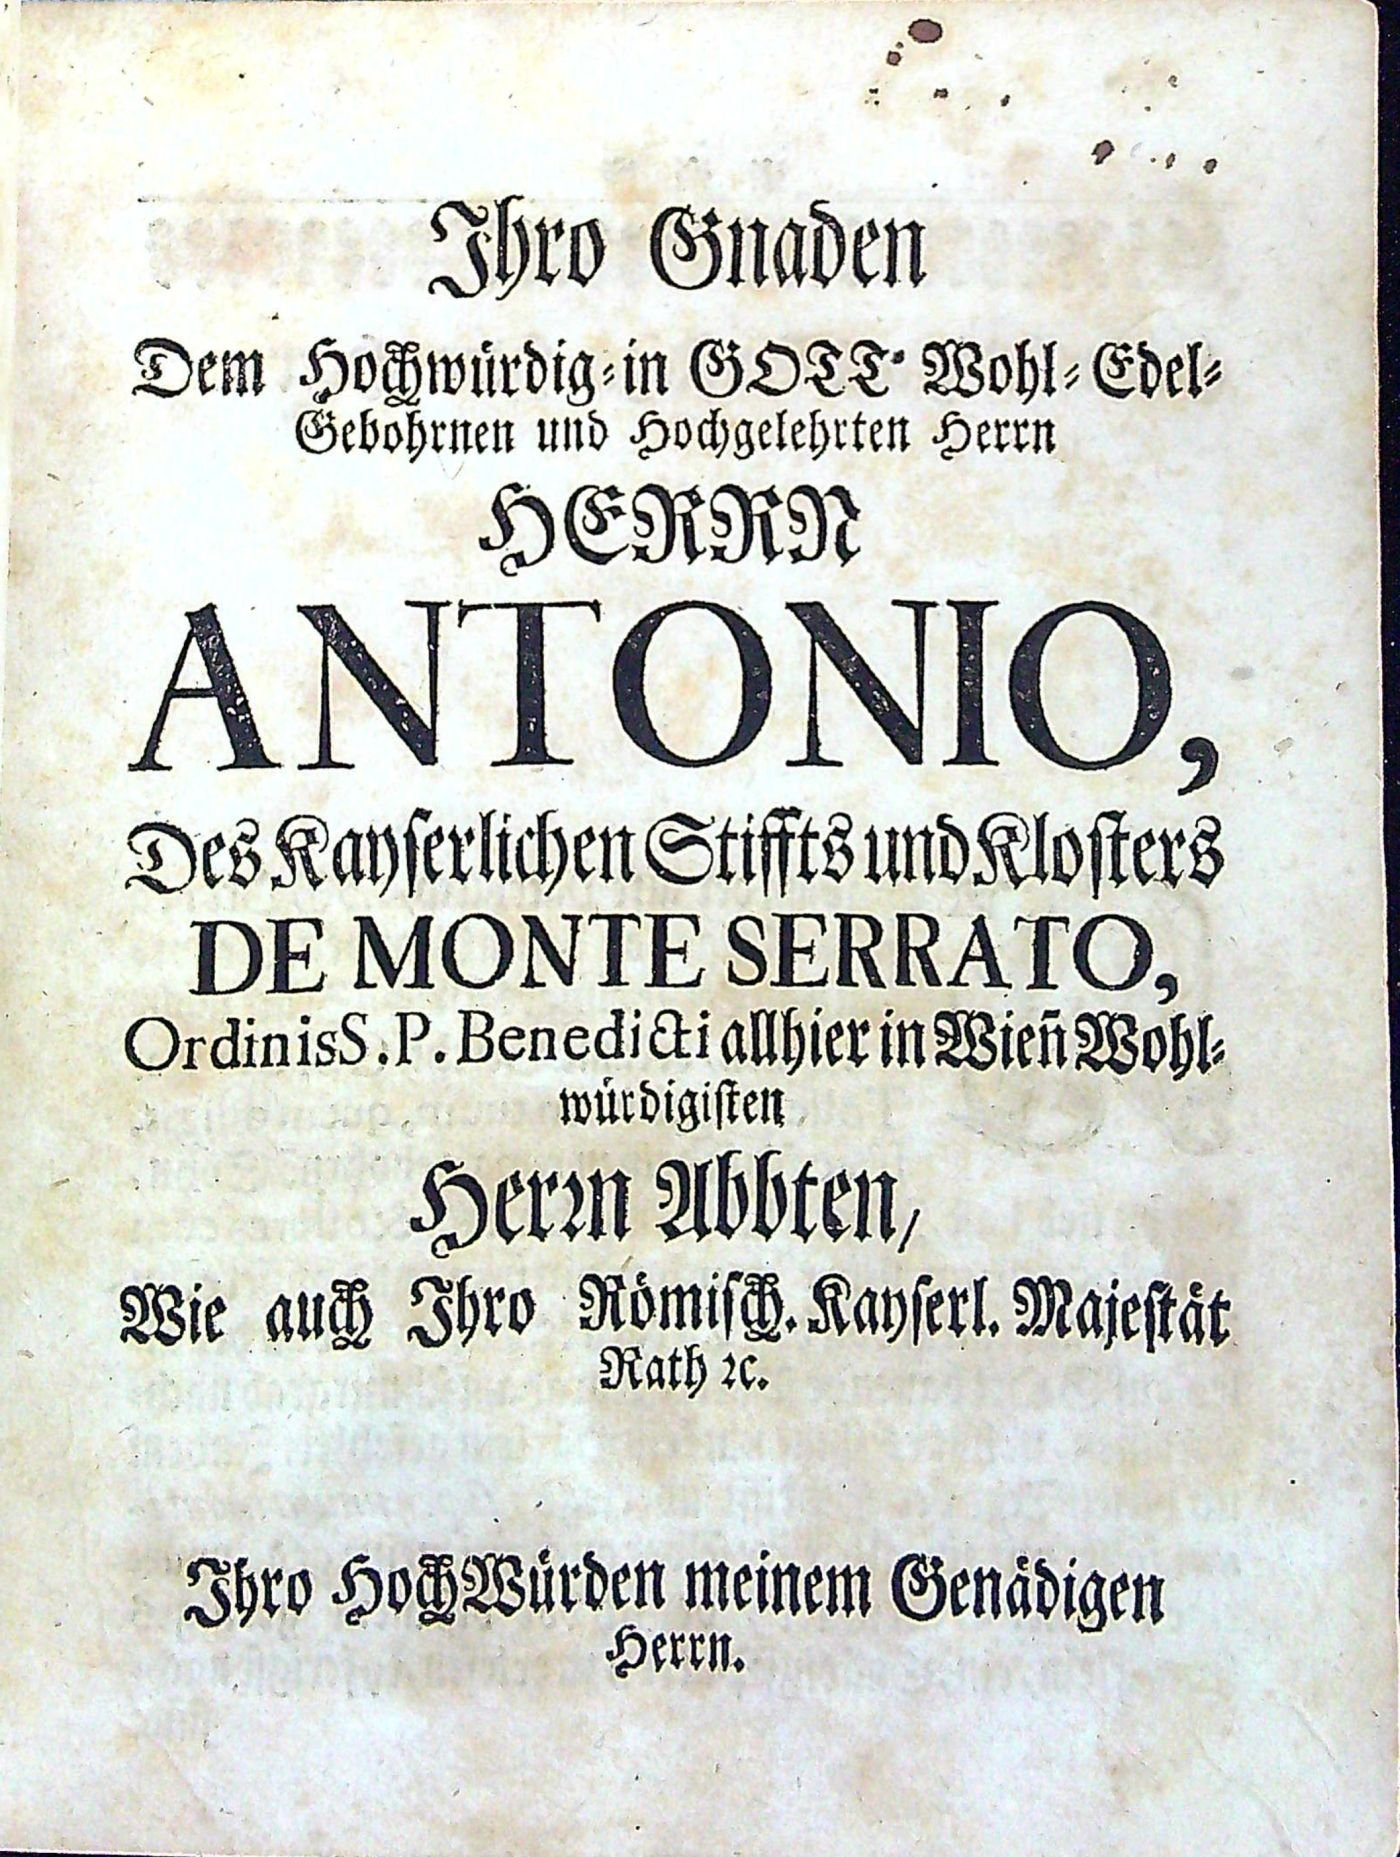 Ihro Gnaden
Dem Hochwürdig-in GOTT Wohl-Edel-
Gebohrnen und Hochgelehrten Herrn
HERRN
ANTONIO,
Des Kayserlichen Stiffts und Klosters
DE MONTE SERRATO,
Ordinis S. P. Benedicti allhier in Wien̄ Wohl-
würdigisten
Herrn Abbten/
Wie auch Ihro Römisch. Kayserl. Majestät
Rath ꝛc.
Ihro HochWürden meinem Genädigen
Herrn.